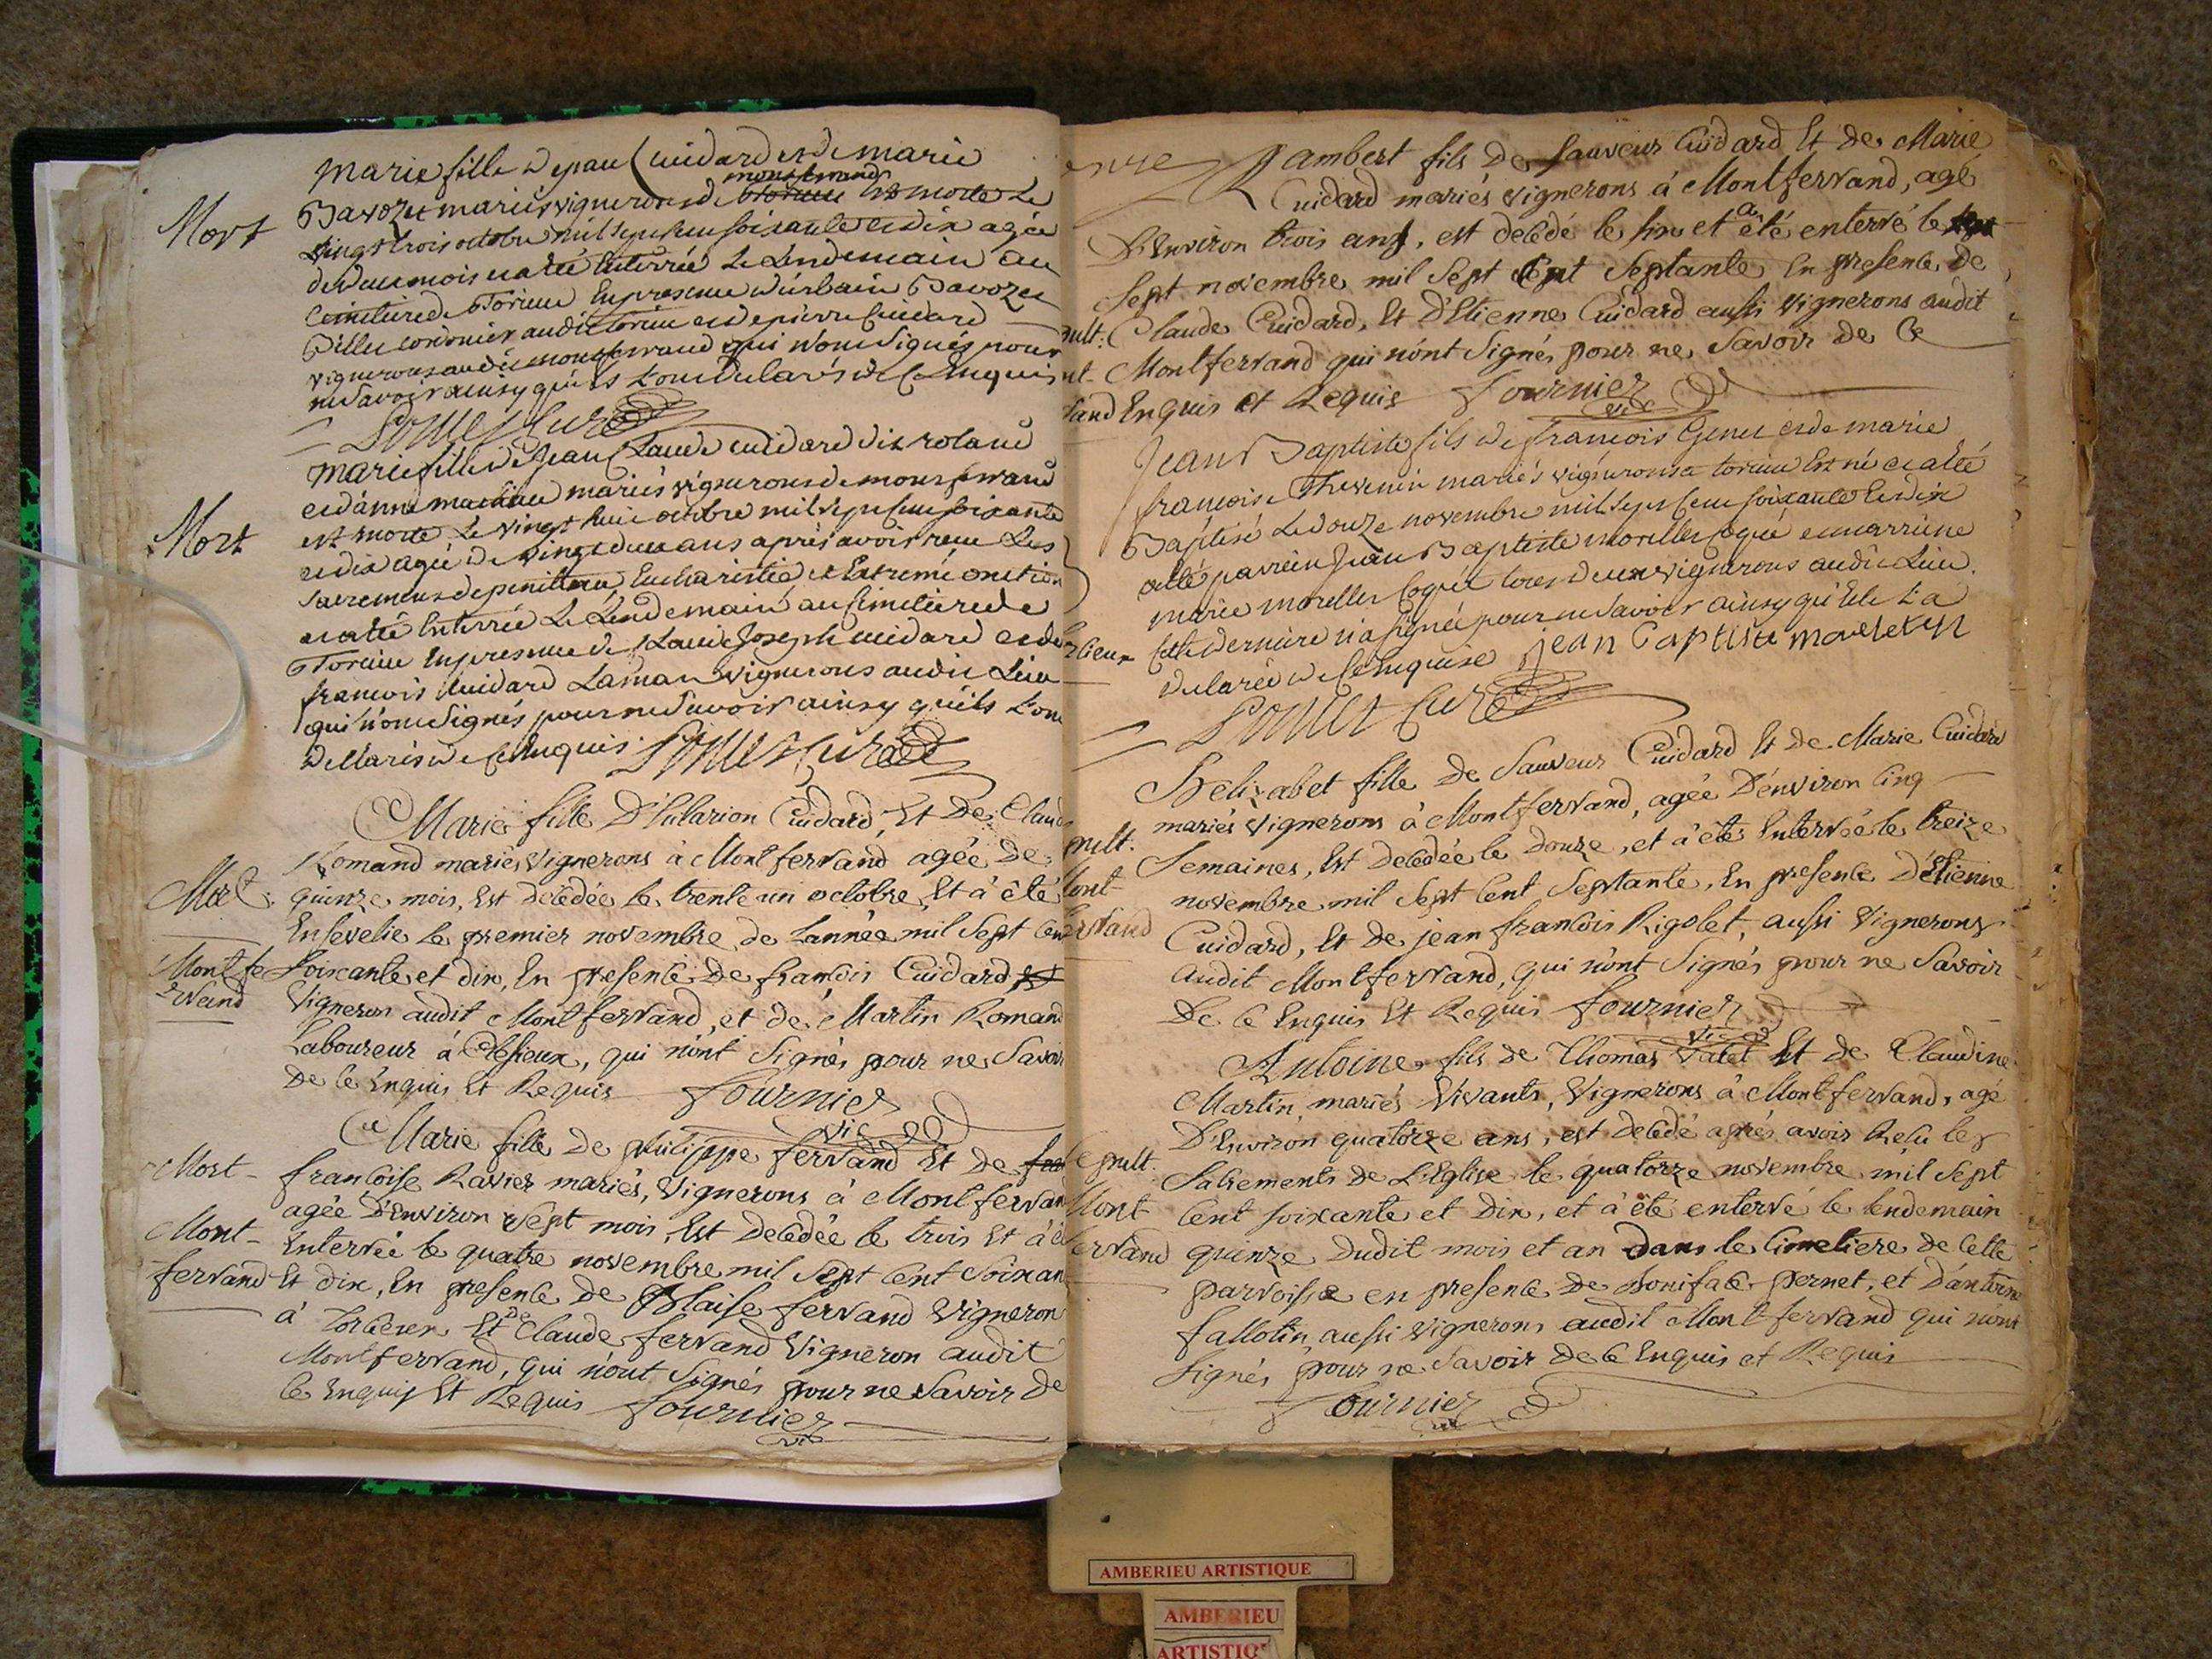 Marie fille de jean Cuidard et de marie
Mort
Bavozet mariés vignerons de montferrand est morte Le
vingt trois octobre mil sept cens soixante et dix agée
de deux mois et a été Enterrée Le Lendemain au
Cimetiere de Torcieu En presence d'urbain Bavozet
Pillu cordonier audit torcieu et de pierre Cuidard
vignerons audit montferrand qui n'ont signés pour
ne savoir ainsy qu'ils L'ont declarés de Ce Enquis
Curé
Marie fille de Jean Claude cuidard dit roland
et d'anne mariés vignerons de montferrand
Mort
est morte Le vingt huit octobre mil sept Cens soixante
et dix agée de vingt deux ans après avoir recu Les
sacremens de penitence Eucharistie et Extreme onction
et a été Enterrée Le Lendemain au Cimetiere de
Torcieu En presence de Claude Joseph cuidard et de
francois Cuidard Laman vignerons audit Lieu
qui n'ont signés pour ne savoir ainsy qu'ils L'ont
declarés de Ce Enquis Curé
Marie fille D'hilarion Cuidard, Et De Claud
Romand mariés, vignerons à Montferrand agée De
Mort. quinze mois, Est Decedée le trente un octobre, Et à été
Ensevelie le premier novembre de Lannée mil Sept Cent
Mont fe Soixante et dix, En presence De francois Cuidard
rrand Vigneron audit Montferrand, et de Martin Romand
Laboureur à Clesieux, qui n'ont Signés pour ne Savoir
De Ce Enquis Et Requis Fournier
vic
Marie fille De philippe ferrand Et De
Mort - francoise Ravier mariés, Vignerons à Montferrand
agée D'Environ Sept mois, Est Decedée le trois Et à é
Mont- Enterrée le quatre novembre mil Sept Cent Soixan
ferrand Et dix, En presence De Blaise ferrand Vigneron
à Torcieux Et De Claude ferrand Vigneron audit
Montferrand, qui n'ont Signés pour ne Savoir De
Ce Enquis Et Requis Fournier
vic
Lambert fils De Sauveur Cuidard Et De Marie
Cuidard mariés vignerons à Montferrand, agé
D'Environ trois ans, est decédé le six et a été enterré le
Sept novembre mil Sept Cent Septante En presence De
pult: Claude Cuidard, Et D'Etienne Cuidard aussi Vignerons audit
nt- Montferrand qui n'ont Signés pour ne Savoir de Ce
rand Enquis et Requis Fournier
vic
Jean Baptiste fils de francois et de marie
francoise Thevenin mariés vignerons a torcieu Est né et a été
Baptisé Le douze novembre mil sept Cens soixante et dix
a été parrein Jean Baptiste morellet Coquet et marreine
marie morellet Coquet tous deux vignerons audit Lieu.
rcieux Cette derniere n'a signée pour ne savoir ainsy qu'Elle L'a
declarée de Ce Enquise jean Baptiste morelet
Curé
Helizabet fille De Sauveur Cuidard Et De Marie Cuidard
mariés Vignerons à Montferrand, agée D'environ Cinq
pult. Semaines, Est Decedée le Douze, et à été Enterrée le treize
Mont- novembre mil Sept Cent Septante, En presence D'Etienne
ferrand Cuidard, Et De jean francois Rigolet, aussi Vignerons
audit Montferrand, qui n'ont Signés pour ne Savoir
De Ce Enquis Et Requis Fournier
vic
Antoine fils de Thomas Et De Claudine
Martin, mariés Vivants, Vignerons à Montferrand, agé
D'Environ quatorze ans, est decedé après avoir Reçu les
pult. Sacrements De L'Eglise le quatorze novembre mil Sept
Mont Cent soixante et Dix, et à été enterré le lendemain
ferrand quinze Dudit mois et an dans le Cimetiere de Cette
parroisse en presence De Boniface pernet, et D'antoine
fallotin, aussi Vignerons audit Montferrand qui n'ont
Signés pour ne Savoir De Ce Enquis et Requis
Fournier
vic
AMBERIEU ARTISTIQUE
AMBERIEU
ARTISTIQ